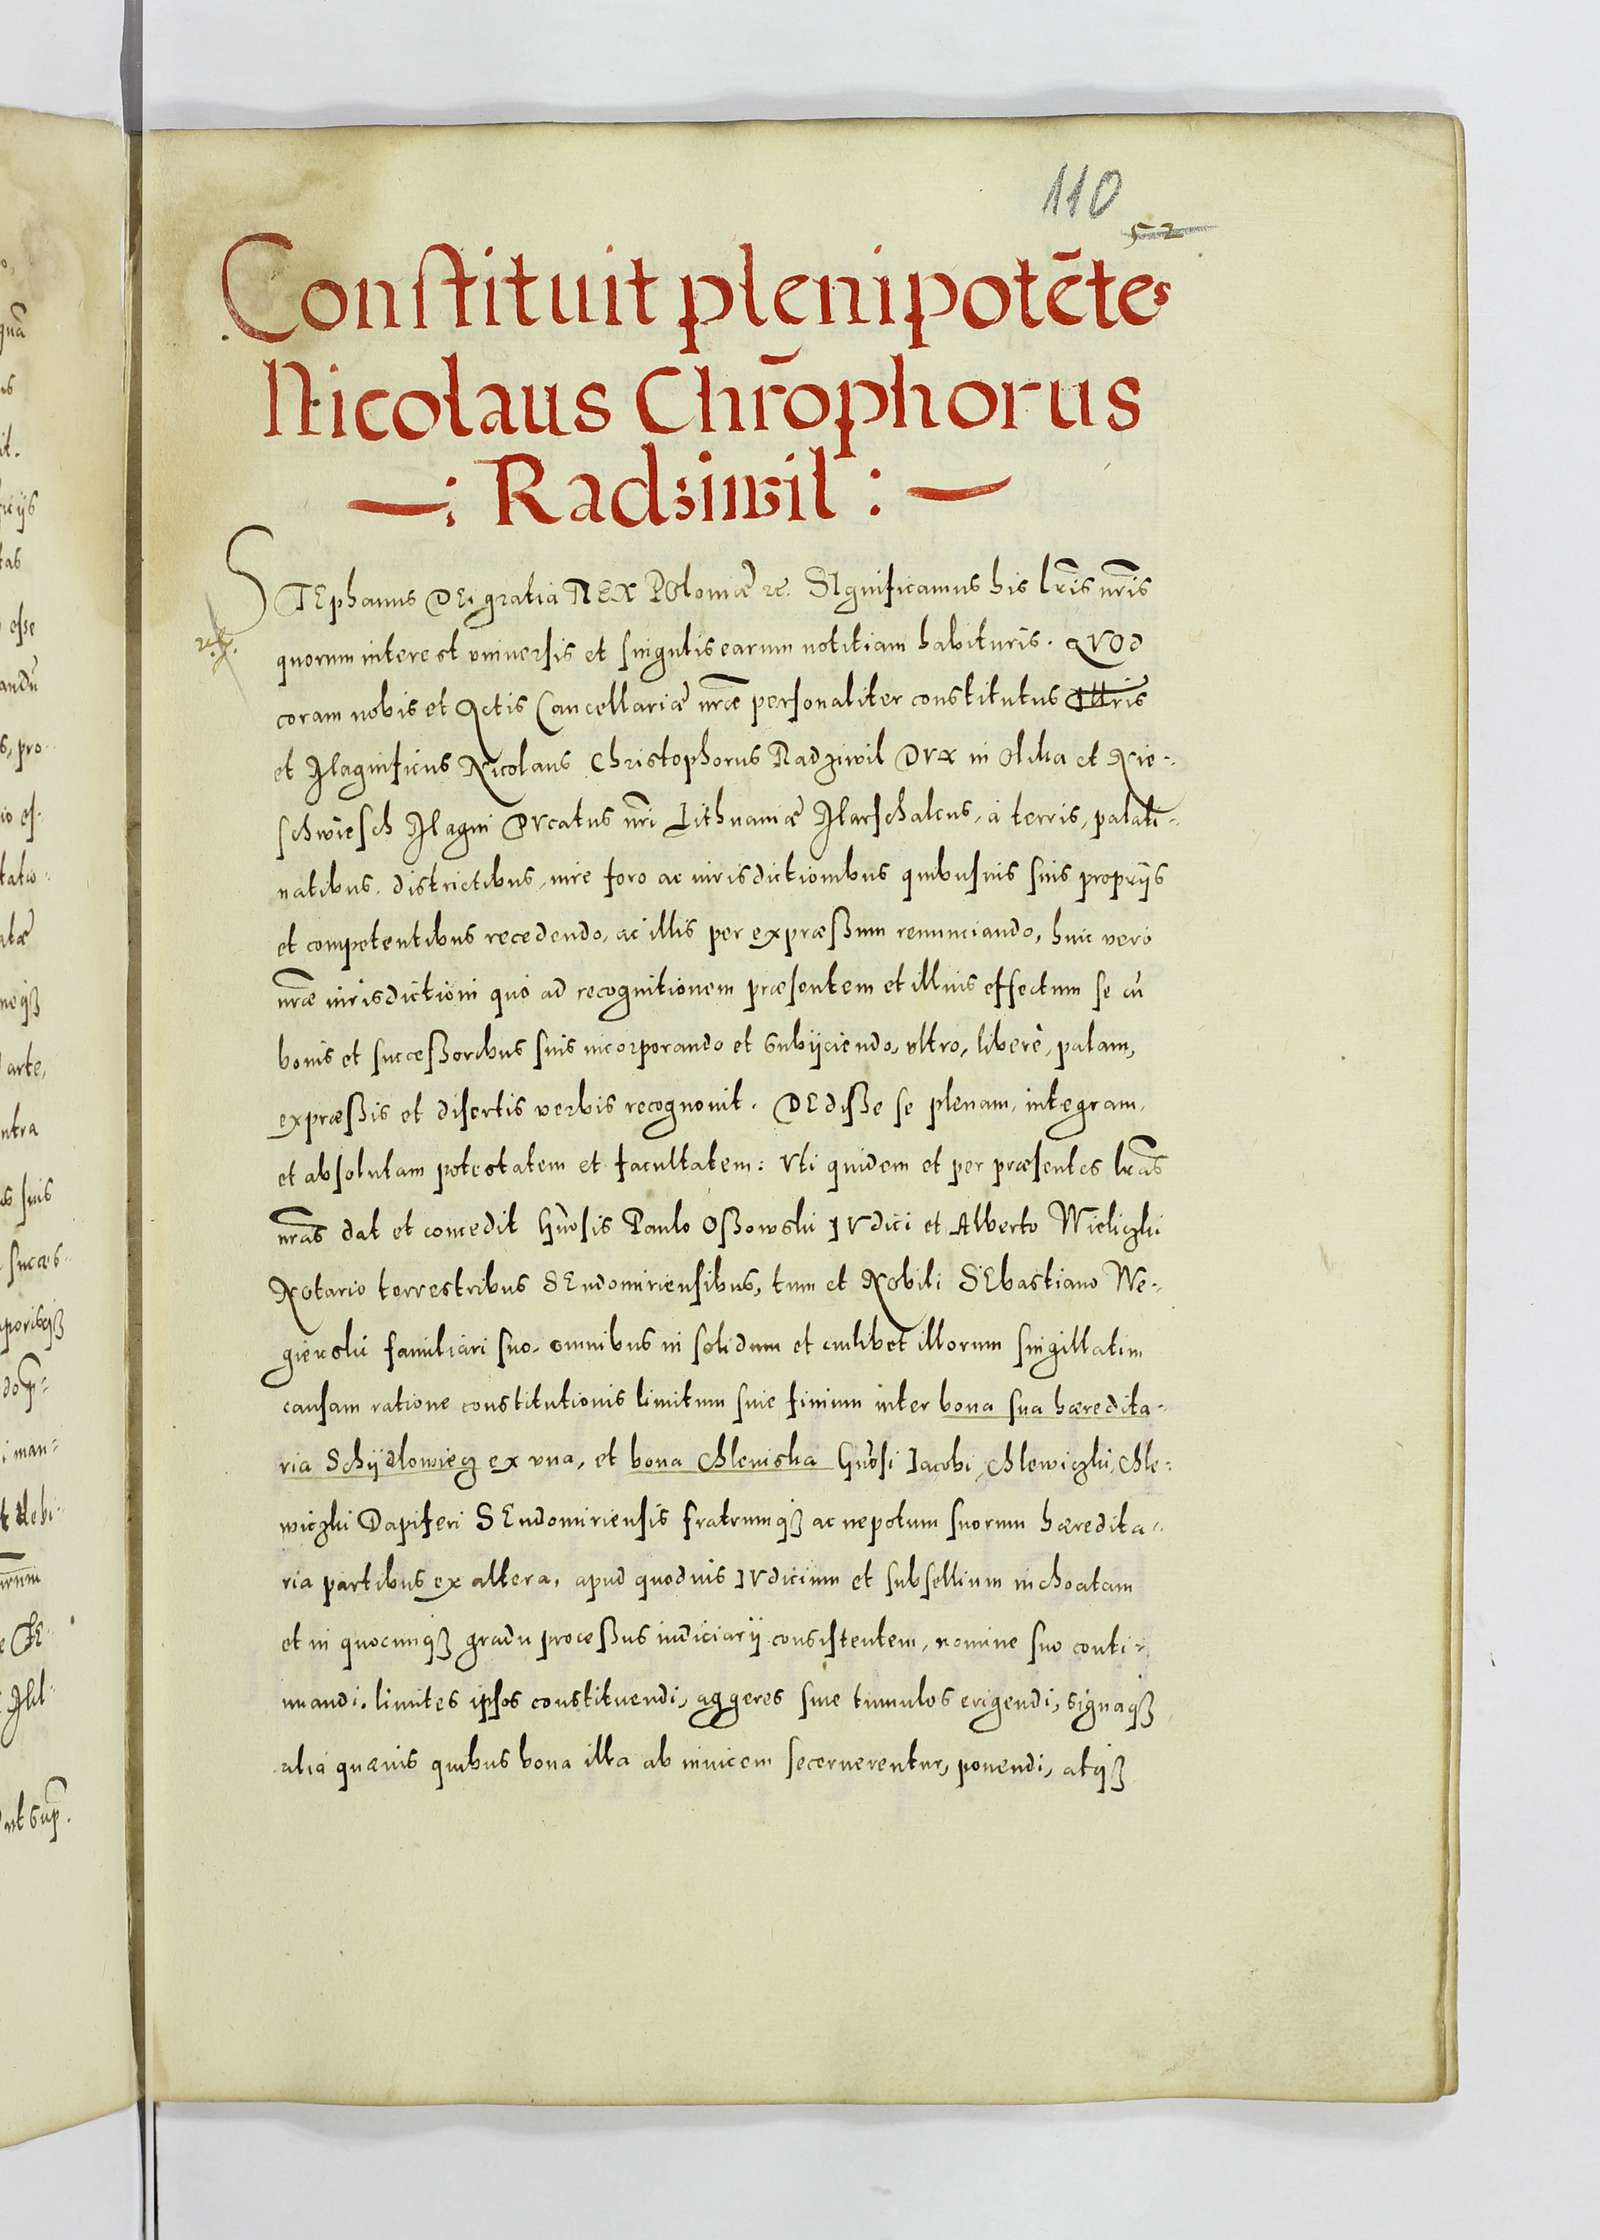 110
52
Constituit plenipotētes
Nicolaus Chrōphorus
Radziwil
STEphanus DEi gratia REX POloniæ etc. SIgnificamus his lr̃is nr̃is
quorum interest vniuersis et singulis earum notitiam habituris. QVOd
coram nobis et Actis Cancellariæ nr̃æ personaliter constitutus Illris
et Magnificus Nicolaus Christophorus Radziwil DVX in Olika et Nie-
schwiesch Magni DVcatus nr̃i Lithuaniæ Marschalcus, à terris, palati-
natibus, districtibus, iure foro ac iurisdictionibus quibusuis suis proprijs
et competentibus recedendo, ac illis per expræßum renunciando, huic vero
nr̃æ iurisdictioni quo ad recognitionem præsentem et illius effectum se cū
bonis et succeßoribus suis incorporando et subijciendo, vltro, liberè, palam,
expræßis et disertis verbis recognouit. DEdiße se plenam, integram,
et absolutam potestatem et facultatem: Vti quidem et per præsentes lr̃as
nr̃as dat et concedit Gñosis Paulo Oßowski IVdici et Alberto Wieliczki
Notario terrestribus SEndomiriensibus, tum et Nobili SEbastiano We-
gierski familiari suo, omnibus in solidum et cuilibet illorum singillatim
causam ratione constitutionis limitum siue finium inter bona sua hæredita-
ria Schÿdlowiecz ex vna, et bona Chlewiska Gñosi Iacobi Chlewiczki, Chle-
wiczki Dapiferi SEndomiriensis fratrumqꝫ ac nepotum suorum hæredita-
ria partibus ex altera, apud quoduis IVdicium et subsellium inchoatam
et in quocunqꝫ gradu proceßus iudiciarij consistentem, nomine suo conti-
nuandi, limites ipsos constituendi, aggeres siue tumulos erigendi, signaqꝫ
alia quæuis quibus bona illa ab inuicem secernerentur, ponendi, atqꝫ